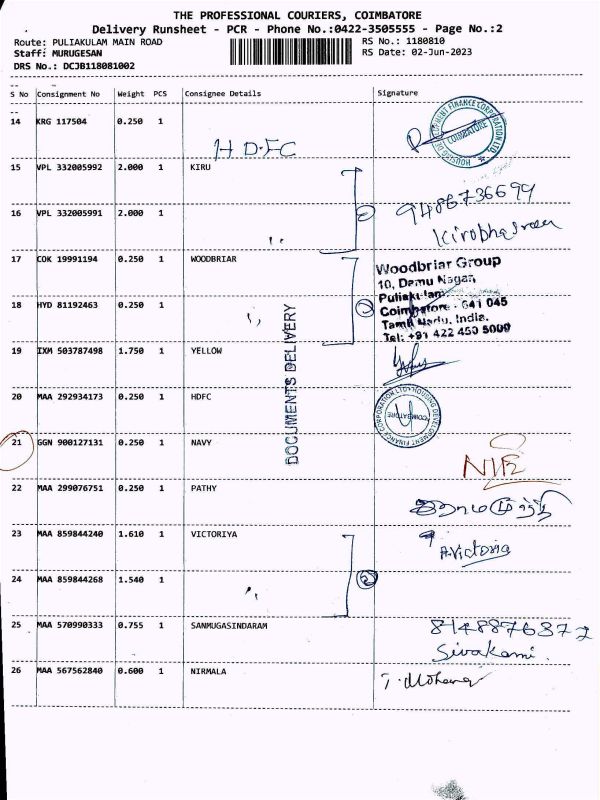 THE PROFESSIONAL COURIERS, COIMBATORE
Delivery Runsheet - PCR - Phone No.:0422-3505555 - Page No.:2
Route: PULIAKULAM MAIN ROAD RS No.: 1180810
Staff: MURUGESAN RS Date: 02-Jun-2023
DRS No.: DCJB118081002
S No Consignment No Weight PCS Consignee Details Signature
14 KRG 117504 0.250 1
H D.F.C
HOUSING DEVELOPMENT FINANCE CORPORATION LTD. COIMBATORE
15 VPL 332005992 2.000 1 KIRU
16 VPL 332005991 2.000 1 ,,
2
9486736699
17 COK 19991194 0.250 1 WOODBRIAR
Woodbriar Group
10, Damu Nagar,
Puliakulam
Coimbatore - 641 045
Tamil Nadu, India.
Tel: +91 422 450 5009
18 HYD 81192463 0.250 1 ,,
2
19 IXM 503787498 1.750 1 YELLOW
DOCUMENTS DELIVERY
20 MAA 292934173 0.250 1 HDFC
HOUSING DEVELOPMENT FINANCE CORPORATION LTD COIMBATORE
21 GGN 900127131 0.250 1 NAVY
22 MAA 299076751 0.250 1 PATHY
23 MAA 859844240 1.610 1 VICTORIYA
A.Victoria
24 MAA 859844268 1.540 1 ,,
2
25 MAA 570990333 0.755 1 SANMUGASINDARAM
8148876372
Sivakami.
26 MAA 567562840 0.600 1 NIRMALA